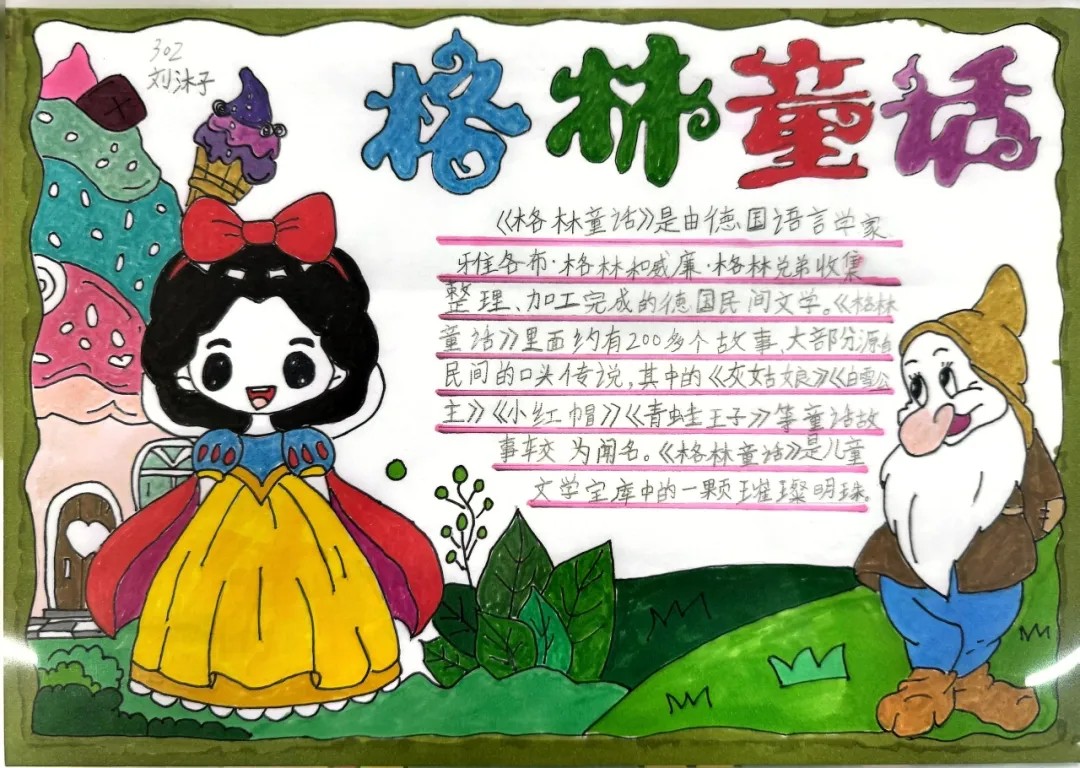 302
刘沐子
格林童话
《格林童话》是由德国语言学家
雅各布·格林和威廉·格林兄弟收集
整理、加工完成的德国民间文学。《格林
童话》里面约有200多个故事、大部分源自
民间的口头传说,其中的《灰姑娘》《白雪公
主》《小红帽》《青蛙王子》等童话故
事较为闻名。《格林童话》是儿童
文学宝库中的一颗璀璨明珠。